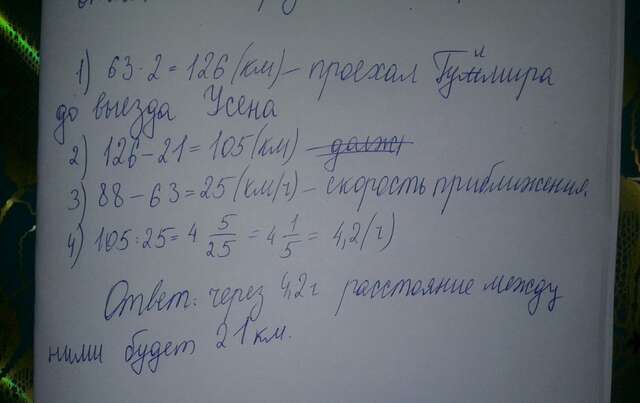 1) 63·2=126(км) – проехал Гулмира
до выезда Усена
2) 126-21=105(км)
3) 88-63=25(км/ч) – скорость приближения.
4) 105:25=4 5/25 =4 1/5 = 4,2(ч)
Ответ: через 4,2ч расстояние между
ними будет 21км.